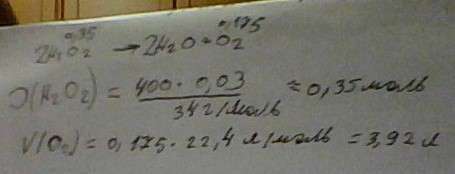 0,35 0,175
2H₂O₂ → 2H₂O + O₂
ν(H₂O₂) = 400 · 0,03 / 34 г/моль = 0,35 моль
V(O₂) = 0,175 · 22,4 л/моль = 3,92 л